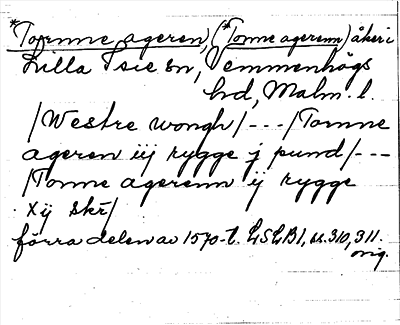 *Tomme ageren, (*Tomme agerenn) åker i
Lilla Isie sn, Vemmenhögs
hd, Malm. l.
/Westre wongh/---/Tomme
ageren iij rygge j pund/---
/Tomme agerenn ij rygge
xij skr/
förra delen av 1570-t. LSLB1, ss. 310, 311.
orig.